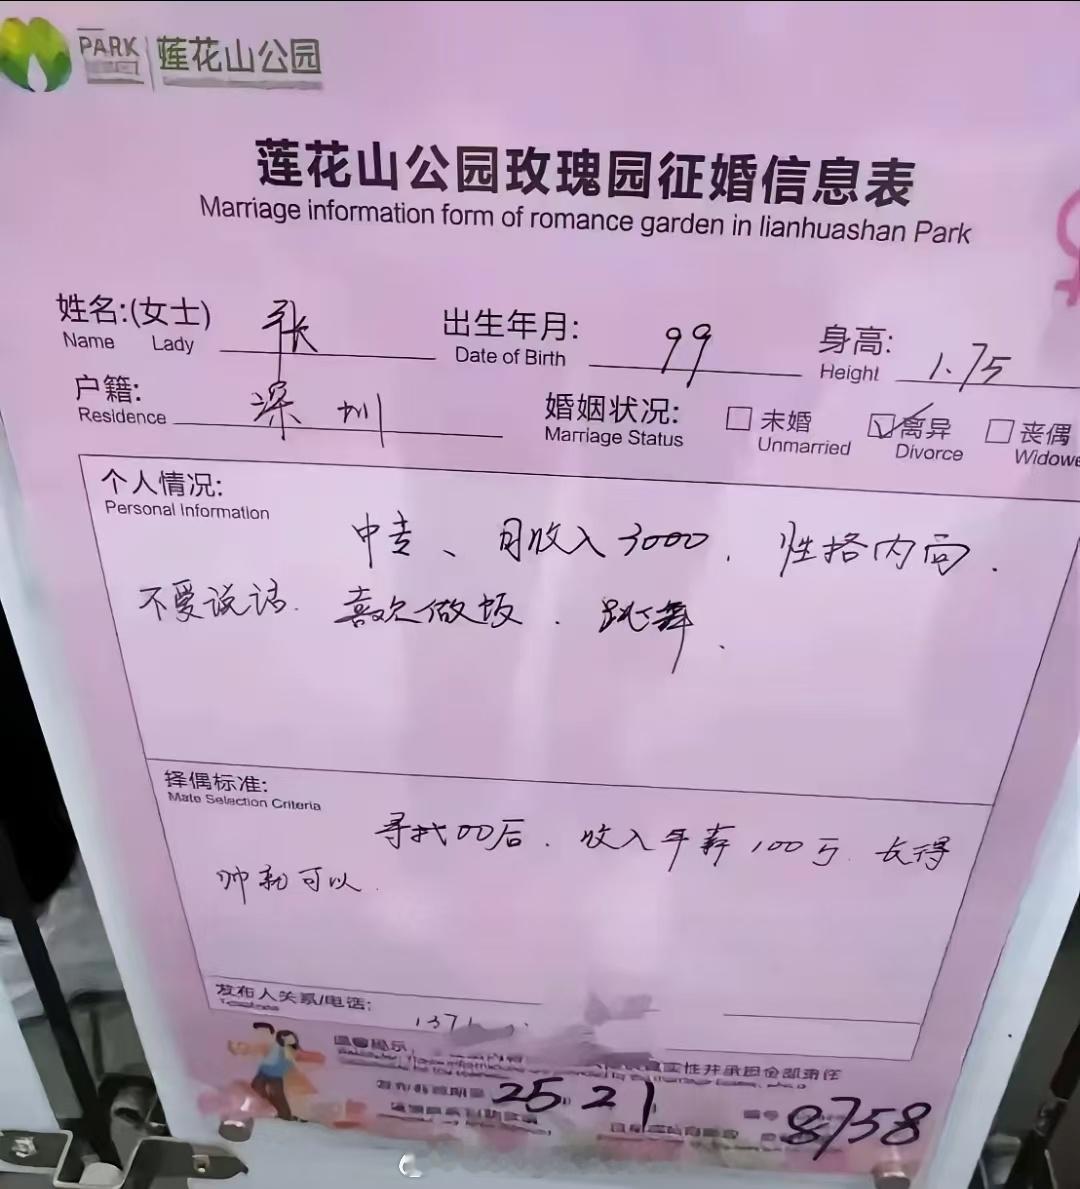 PARK 莲花山公园
莲花山公园玫瑰园征婚信息表
Marriage information form of romance garden in lianhuashan Park
姓名:(女士) 张 出生年月: 99 身高: 1.75
Name Lady Date of Birth Height
户籍: 深圳 婚姻状况: 未婚 离异 丧偶
Residence Marriage Status Unmarried Divorce Widowe
个人情况:
Personal Information
中专、月收入3000.性格内向.
不爱说话.喜欢做饭.跳舞.
择偶标准:
Mate Selection Criteria
寻找00后.收入年薪100万.长得
帅就可以.
发布人关系/电话: 1371
温馨提示
真实性并承担全部责任
25 21 8758